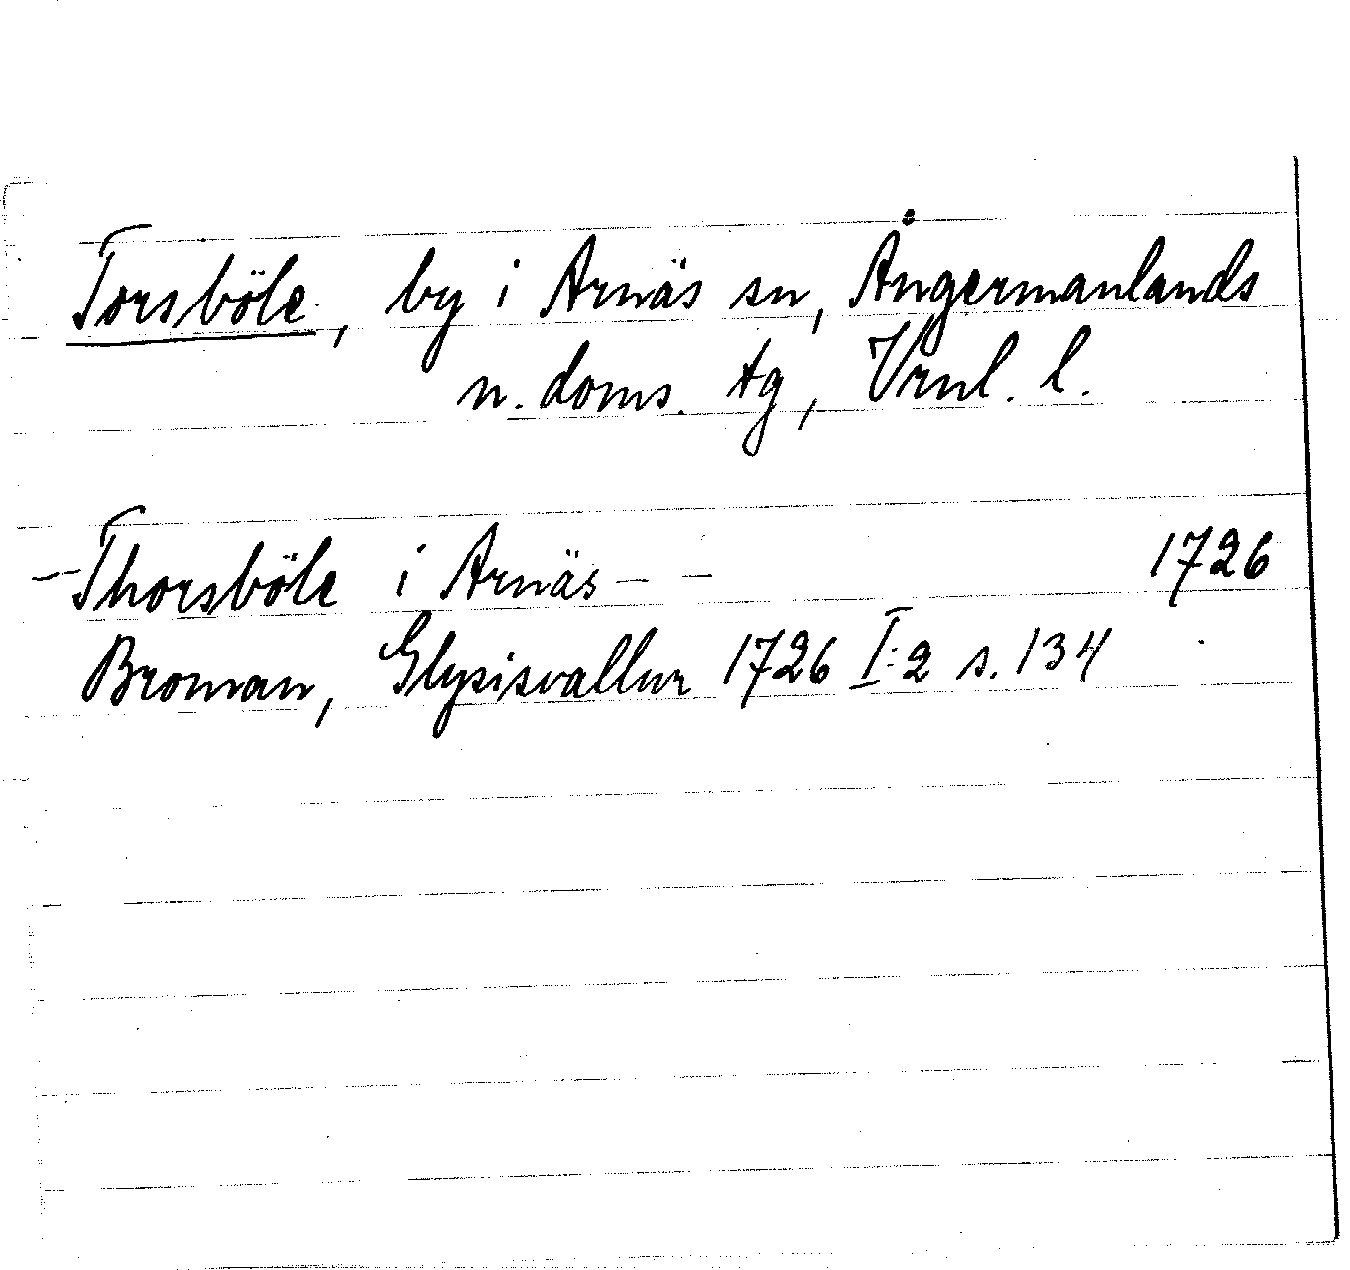 Torsböle, by i Arnäs sn, Ångermanlands
n. doms. tg, Vrnl. l.
-- Thorsböle i Arnäs - - 1726
Broman, Glysisvallur 1726 I:2 s. 134